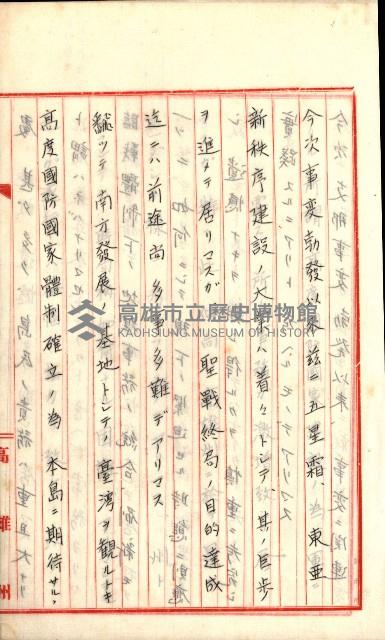 今次事変勃發以来茲ニ五星霜、東亜
新秩序建設ノ大業ハ着々トシテ其ノ巨歩
ヲ進メテ居リマスガ 聖戰終局ノ目的達成
迄ニハ前途尚多事多難デアリマス
飜ツテ南方發展ノ基地トシテノ臺湾ヲ觀ルトキ
高度國防國家體制確立ノ為本島ニ期待サル、
高雄州
高雄市立歷史博物館
KAOHSIUNG MUSEUM OF HISTORY